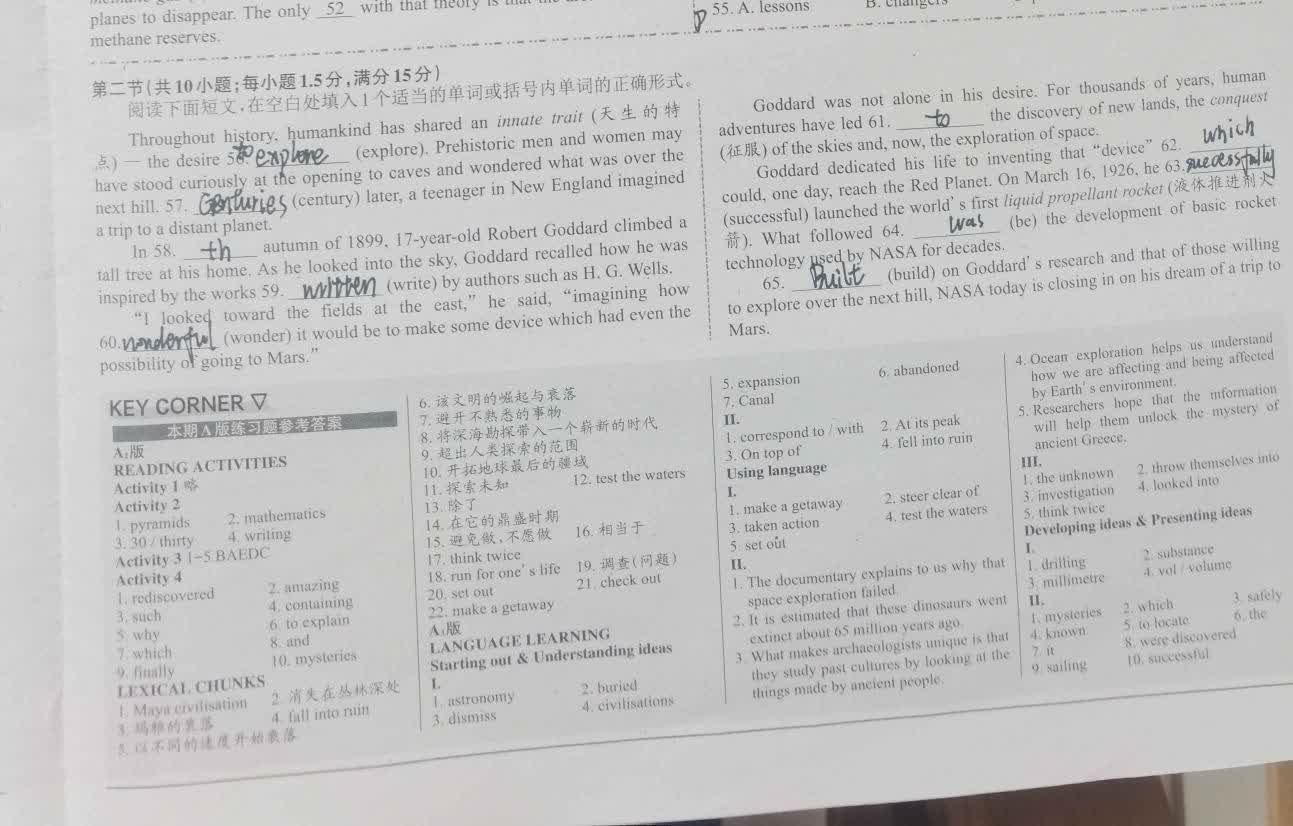 planes to disappear. The only 52 with that theory is that the
methane reserves.
55. A. lessons B. changers
第二节(共10小题;每小题1.5分,满分15分)
阅读下面短文,在空白处填入1个适当的单词或括号内单词的正确形式。
Throughout history, humankind has shared an innate trait (天生的特
点) — the desire 56. to explore (explore). Prehistoric men and women may
have stood curiously at the opening to caves and wondered what was over the
next hill. 57. Centuries (century) later, a teenager in New England imagined
a trip to a distant planet.
In 58. th autumn of 1899, 17-year-old Robert Goddard climbed a
tall tree at his home. As he looked into the sky, Goddard recalled how he was
inspired by the works 59. written (write) by authors such as H. G. Wells.
“I looked toward the fields at the east,” he said, “imagining how
60. wonderful (wonder) it would be to make some device which had even the
possibility of going to Mars.”
Goddard was not alone in his desire. For thousands of years, human
adventures have led 61. to the discovery of new lands, the conquest
(征服) of the skies and, now, the exploration of space.
Goddard dedicated his life to inventing that “device” 62. which
could, one day, reach the Red Planet. On March 16, 1926, he 63. successfully
(successful) launched the world's first liquid propellant rocket (液体推进剂火
箭). What followed 64. was (be) the development of basic rocket
technology used by NASA for decades.
65. Built (build) on Goddard's research and that of those willing
to explore over the next hill, NASA today is closing in on his dream of a trip to
Mars.
KEY CORNER ▽
本期A版练习题参考答案
A₂版
READING ACTIVITIES
Activity 1 略
Activity 2
1. pyramids 2. mathematics
3. 30 / thirty 4. writing
Activity 3 1-5 BAEDC
Activity 4
1. rediscovered 2. amazing
3. such 4. containing
5. why 6. to explain
7. which 8. and
9. finally 10. mysteries
LEXICAL CHUNKS
1. Maya civilisation 2. 消失在丛林深处
3. 玛雅的衰落 4. fall into ruin
5. 以不同的速度开始衰落
6. 该文明的崛起与衰落
7. 避开不熟悉的事物
8. 将深海勘探带入一个崭新的时代
9. 超出人类探索的范围
10. 开拓地球最后的疆域
11. 探索未知 12. test the waters
13. 除了
14. 在它的鼎盛时期
15. 避免做,不愿做 16. 相当于
17. think twice
18. run for one's life 19. 调查(问题)
20. set out 21. check out
22. make a getaway
版
LANGUAGE LEARNING
Starting out & Understanding ideas
I.
1. astronomy 2. buried
3. dismiss 4. civilisations
5. expansion 6. abandoned
7. Canal
II.
1. correspond to / with 2. At its peak
3. On top of 4. fell into ruin
Using language
I.
1. make a getaway 2. steer clear of
3. taken action 4. test the waters
5. set out
II.
1. The documentary explains to us why that
space exploration failed.
2. It is estimated that these dinosaurs went
extinct about 65 million years ago.
3. What makes archaeologists unique is that
they study past cultures by looking at the
things made by ancient people.
4. Ocean exploration helps us understand
how we are affecting and being affected
by Earth's environment.
5. Researchers hope that the information
will help them unlock the mystery of
ancient Greece.
III.
1. the unknown 2. throw themselves into
3. investigation 4. looked into
5. think twice
Developing ideas & Presenting ideas
I.
1. drilling 2. substance
3. millimetre 4. vol / volume
II.
1. mysteries 2. which 3. safely
4. known 5. to locate 6. the
7. it 8. were discovered
9. sailing 10. successful